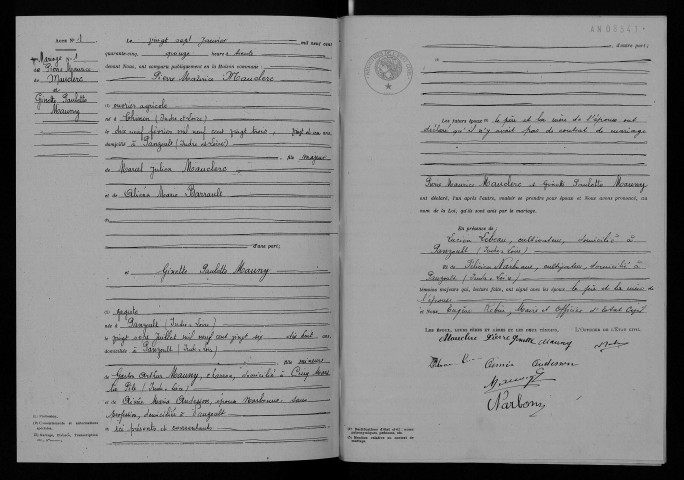 Acte N° 1
Mariage n° 1
de
Pierre Maurice
Mauclerc
et
Ginette Paulette
Mauny
Le vingt sept Janvier mil neuf cent
quarante-cinq, quinze heures trente
devant Nous, ont comparu publiquement en la Maison commune :
Pierre Maurice Mauclerc
(1) ouvrier agricole
né à Chinon (Indre et Loire)
le dix neuf février mil neuf cent vingt trois, vingt et un ans,
domicilié à Panzoult (Indre et Loire)
fils majeur
de Marcel Julien Mauclerc
et de Alicia Marie Barrault
d'une part;
et Ginette Paulette Mauny
(1)
née à Panzoult (Indre et Loire)
le vingt sept Juillet mil neuf cent vingt six dix huit ans,
domiciliée à Panzoult (Indre et Loire)
fille mineure
de Gaston Arthur Mauny, domicilié à Cinq Mars
la Pile (Indre et Loire)
et de Aimée Marie Andesson, épouse Narbonne, sans
profession, domiciliée à Panzoult
ici présents et consentants
(1) Profession.
AN D8541
d'autre part;
Les futurs époux le père et la mère de l'épouse ont
déclaré qu'il n'y avait pas de contrat de mariage
Pierre Maurice Mauclerc et Ginette Paulette Mauny
ont déclaré, l'un après l'autre, vouloir se prendre pour époux et Nous avons prononcé, au
nom de la Loi, qu'ils sont unis par le mariage.
En présence de :
Lucien Lebeau, cultivateur, domicilié à
Panzoult (Indre et Loire)
Et de Félicien Narbonne, cultivateur, domicilié à
Panzoult (Indre et Loire)
témoins majeurs qui, lecture faite, ont signé avec les époux le père et la mère de
l'épouse
et Nous Eugène Maire et Officier d'Etat Civil
LES ÉPOUX, LEURS PÈRES ET MÈRES ET LES DEUX TÉMOINS. L'Officier de l'État civil.
Mauclerc Pierre Ginette Mauny
Aimée Andesson
Mauny G
Narbonne